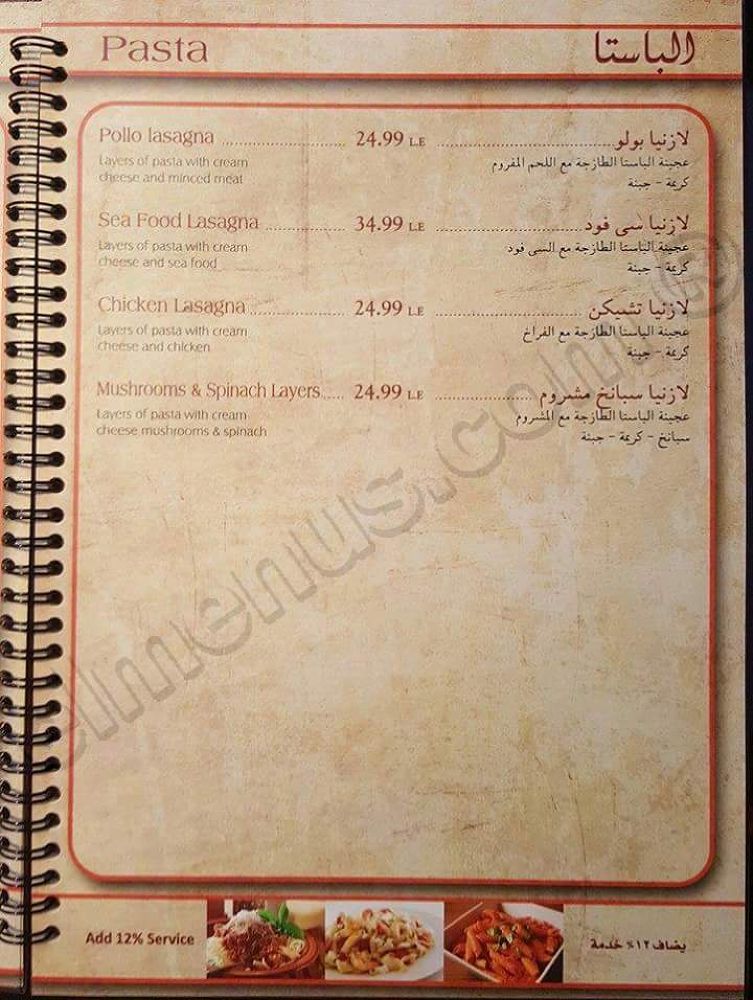 Pasta
الباستا
Pollo lasagna ........................ 24.99 L.E ........................ لازنيا بولو
Layers of pasta with cream
cheese and minced meat
عجينة الباستا الطازجة مع اللحم المفروم
كريمة - جبنة
Sea Food Lasagna ............... 34.99 L.E ........................ لازنيا سى فود
Layers of pasta with cream
cheese and sea food
عجينة الباستا الطازجة مع السى فود
كريمة - جبنة
Chicken Lasagna .................. 24.99 L.E ........................ لازنيا تشيكن
Layers of pasta with cream
cheese and chicken
عجينة الباستا الطازجة مع الفراخ
كريمة - جبنة
Mushrooms & Spinach Layers..... 24.99 L.E .................. لازنيا سبانخ مشروم
Layers of pasta with cream
cheese mushrooms & spinach
عجينة الباستا الطازجة مع المشروم
سبانخ - كريمة - جبنة
elmenus.com®
Add 12% Service
يضاف ١٢٪ خدمة